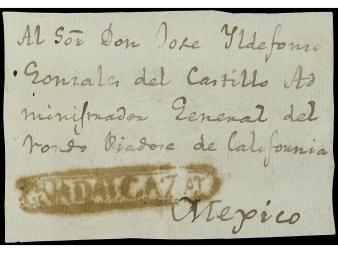 Al Sor Don Jose Yldefonso
Gonzales del Castillo Ad
ministrador General del
Fondo Piadoso de California
GUADALCAZAR
Mexico